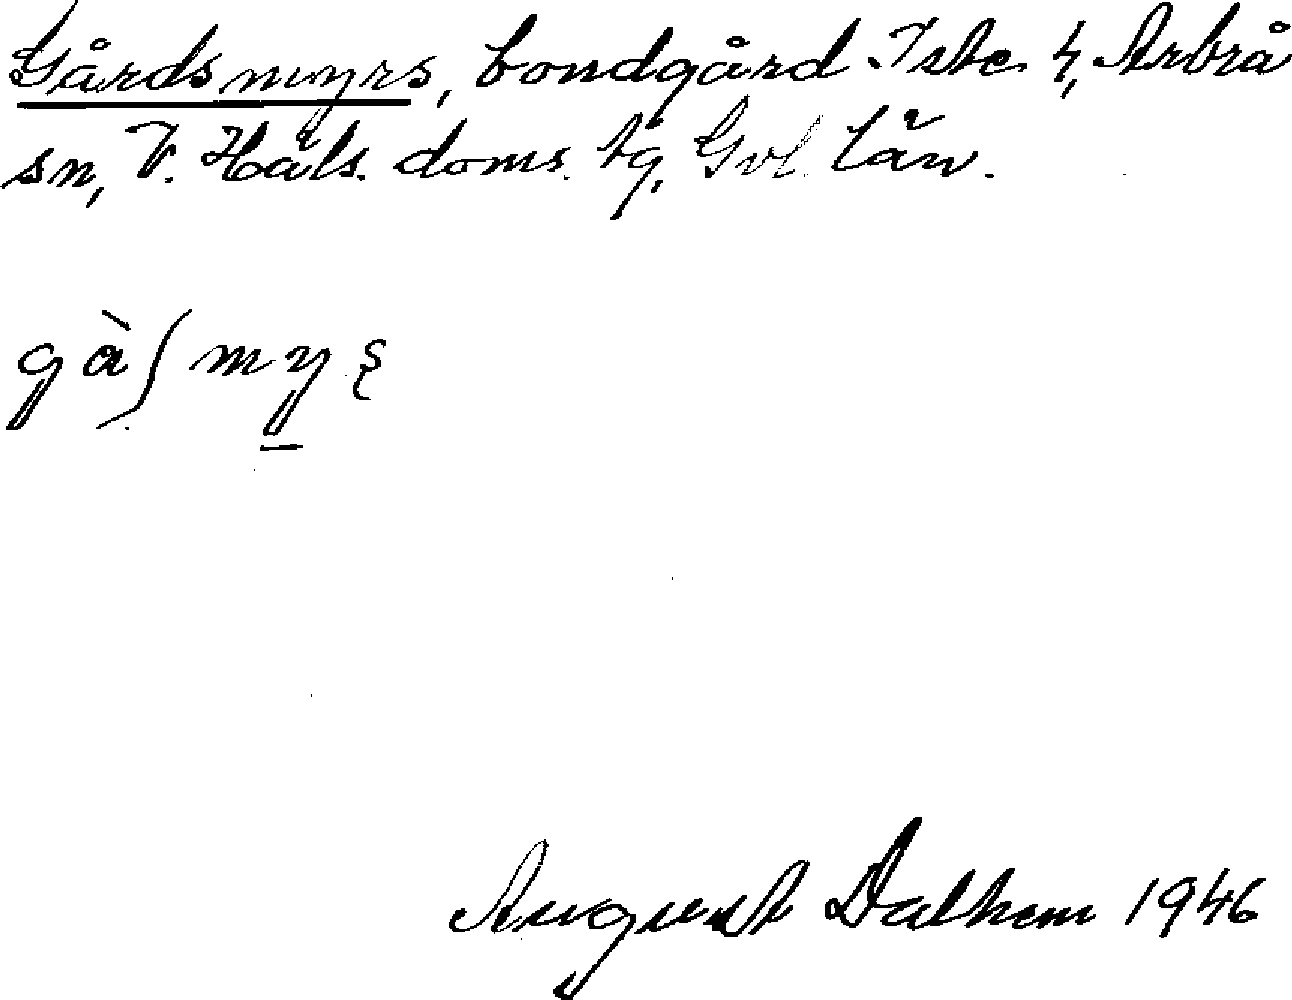 Gårdsmyrs, bondgård Iste 4, Arbrå
sn, V. Häls. doms. tg, Gvl. län.
gàʃmyʂ
August Dalhem 1946